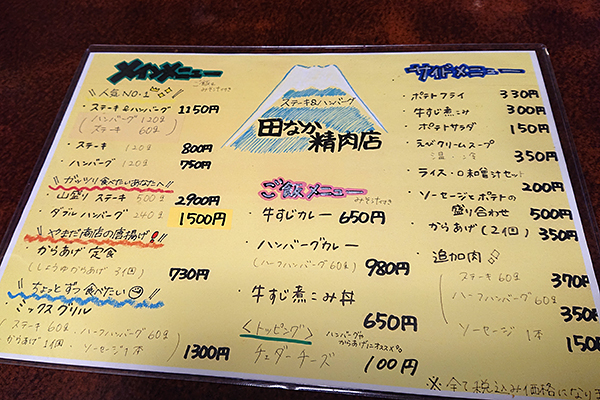 メインメニュー
ご飯と
みそ汁付き
人気NO.1
・ステーキ&ハンバーグ 1150円
(ハンバーグ 120g
ステーキ 60g)
・ステーキ 120g 800円
・ハンバーグ 120g 750円
\\ガッツリ食べたいあなたへ!!
・山盛り ステーキ 500g 2900円
・ダブル ハンバーグ 240g 1500円
\\やまだ商店の唐揚げ!!
からあげ 定食
(しょうゆからあげ 3個) 730円
\\ちょっとずつ食べたい//
ミックスグリル
(ステーキ 60g ・ハーフハンバーグ 60g
・からあげ1個 ・ソーセージ1本 1300円
ステーキ&ハンバーグ
田なか
精肉店
ご飯メニュー
みそ汁付き
・牛すじカレー 650円
・ハンバーグカレー
(ハーフハンバーグ 60g) 980円
・牛すじ煮こみ丼
650円
<トッピング> ハンバーグや
からあげにオススメ
チェダーチーズ 100円
サイドメニュー
・ポテトフライ 330円
・牛すじ煮こみ 300円
・ポテトサラダ 150円
・えびクリームスープ
温・冷 350円
・ライス・日和薯汁セット
200円
・ソーセージとポテトの
盛り合わせ 500円
・からあげ(2個) 350円
・追加肉
(ステーキ 60g 370円
ハーフハンバーグ 60g 350円
ソーセージ 1本 150円
※全て税込み価格になりま